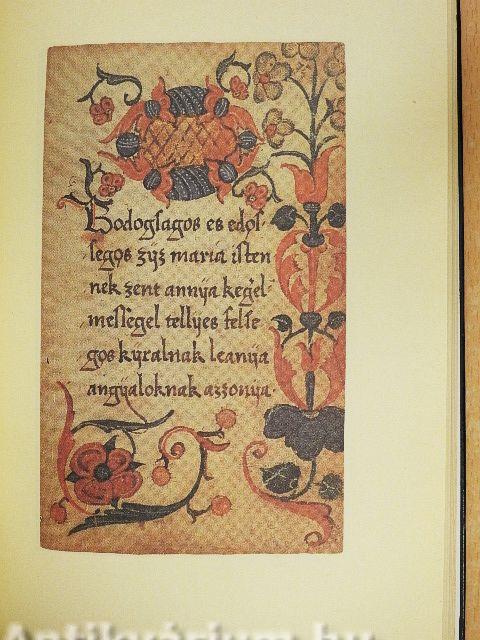 Bodogsagos es edos-
segos zijz maria isten
nek zent annija kegel-
messegel tellyes felse
gos kyralnak leanija
angijaloknak azzonija
Antikvárium.hu